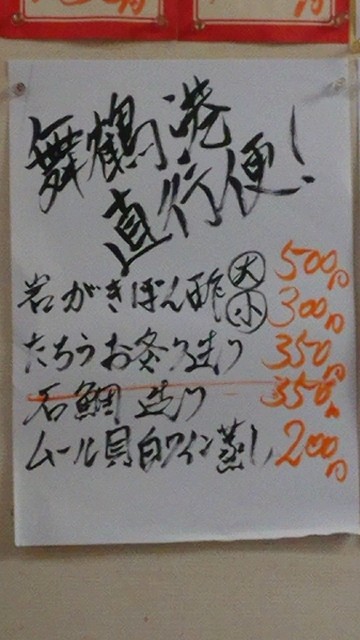 舞鶴港
直行便!
岩がきぽん酢 大 500円
小 300円
たちうお炙り造り 350円
石鯛 造り 350円
ムール貝白ワイン蒸し 200円